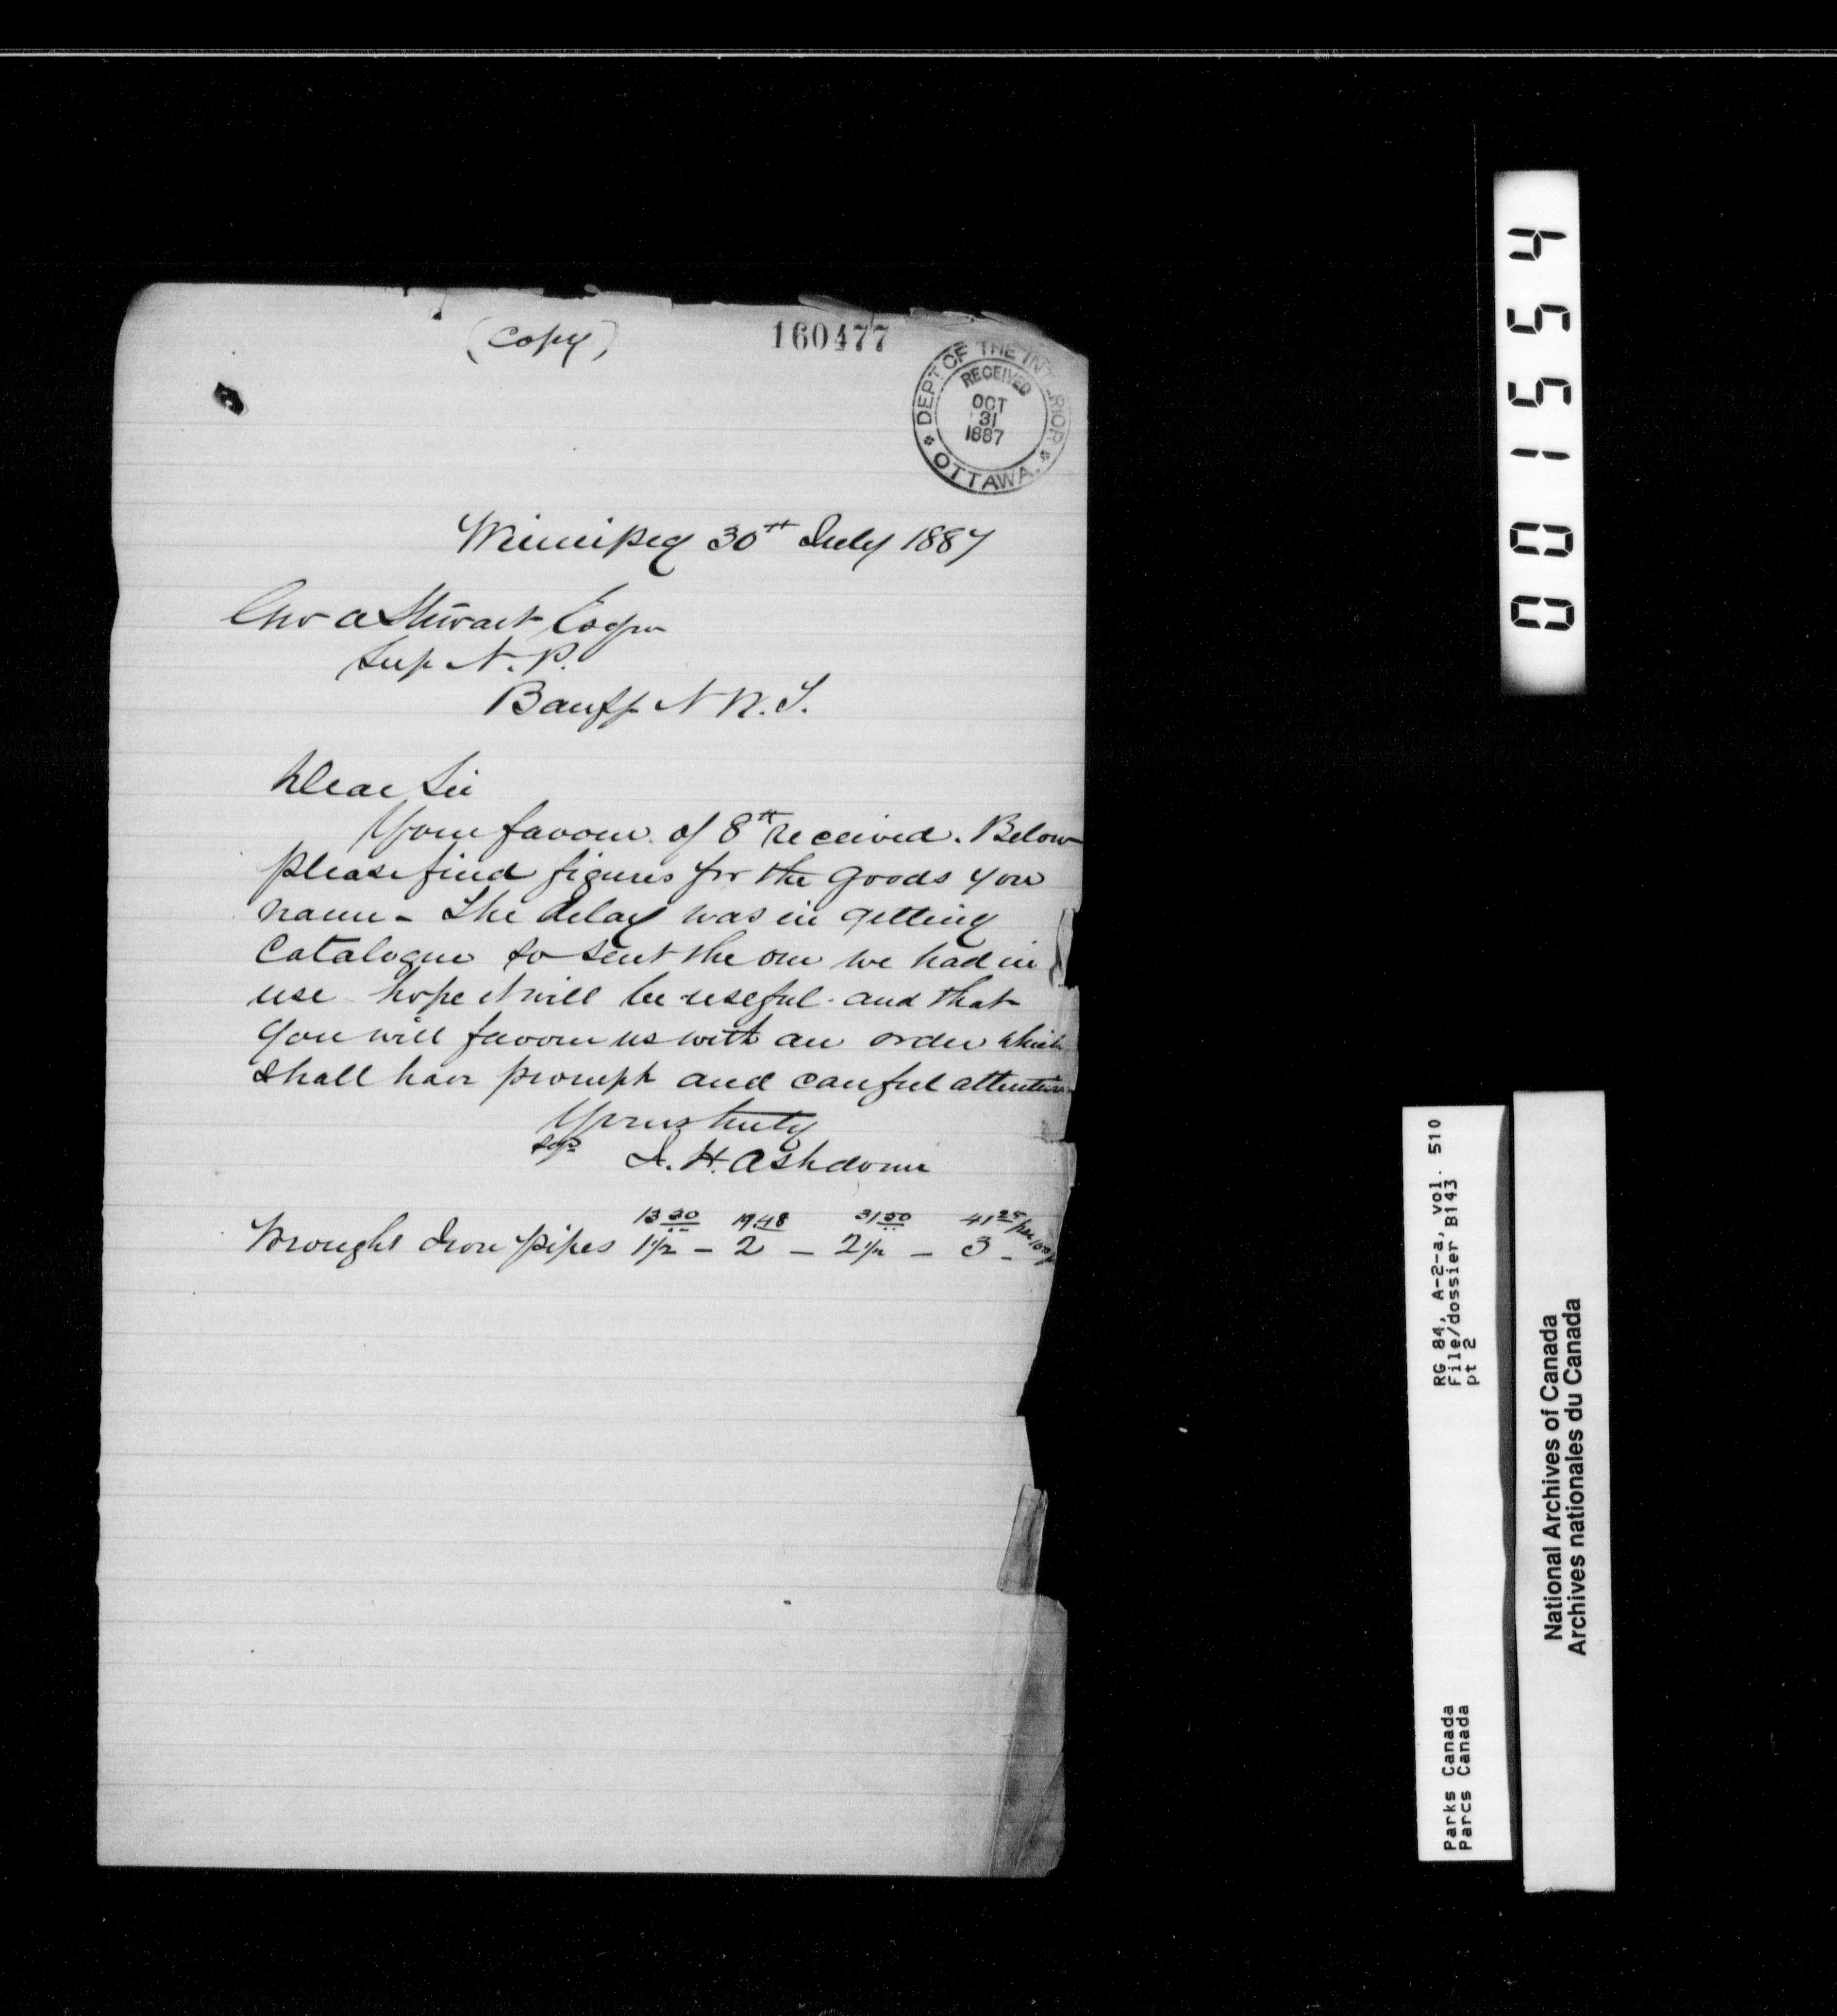 (Copy)
160477
DEPT. OF THE INTERIOR
RECEIVED
OCT
31
1887
OTTAWA.
Winnipeg 30th July 1887
Geo A Stewart Esqr
Sup N. P.
Banff N W. T.
Dear Sir
Your favour of 8th received. Below
please find figures for the goods you
name - The delay was in getting
Catalogue so sent the one we had in
use hope it will be useful and that
you will favour us with an order which
shall have prompt and careful attention
Yours truly
sgd J. H. Ashdown
13 30 19 48 31 50 41 25 per 100 ft
Wrought Iron pipes 1 1/2 - 2 - 2 1/2 - 3 -
001554
RG 84, A-2-a, vol. 510
File/dossier B143
pt 2
Parks Canada
Parcs Canada
National Archives of Canada
Archives nationales du Canada